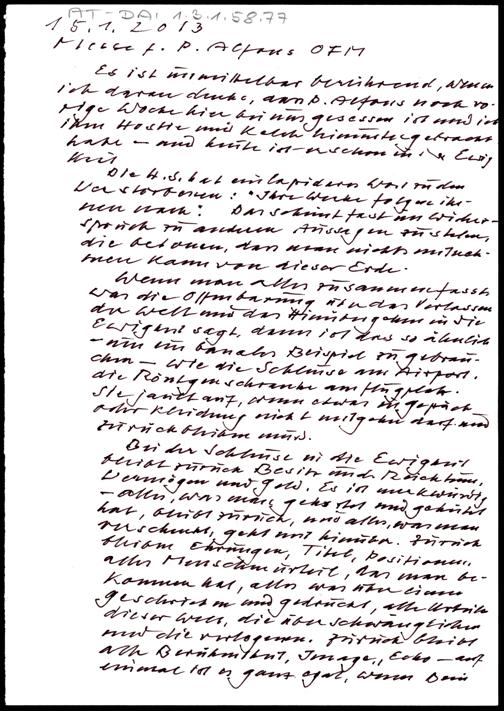 AT-DAI 1.3.1.58.77
15.1.2013
Messe f. P. Alfons OFM
Es ist unmittelbar berührend, wenn
ich daran denke, dass P. Alfons noch vo-
rige Woche hier bei uns gesessen ist und ich
ihm Hostie und Kelch hinunter gebracht
habe – und heute ist er schon in der Ewig
keit
Die H.S. hat ein lapidares Wort zu den
Verstorbenen: "Ihre Werke folgen ih-
nen nach". Das scheint fast im Wider-
spruch zu anderen Aussagen zu stehen,
die betonen, dass man nichts mitneh-
men kann von dieser Erde.
Wenn man alles zusammenfasst
was die Offenbarung über das Verlassen
der Welt und das Hinübergehen in die
Ewigkeit sagt, dann ist das so ähnlich
– um ein banales Beispiel zu gebrau-
chen – wie die Schleuse am Airport.
die Röntgenschranke am Flugplatz.
Sie jault auf, wenn etwas in Gepäck
oder Kleidung nicht mitgehn darf und
zurückbleiben muss.
Bei der Schleuse in die Ewigkeit
bleibt zurück Besitz und Reichtum,
Vermögen und Geld. Es ist merkwürdig
– alles, was man gehortet und gehütet
hat, bleibt zurück, und alles, was man
verschenkt, geht mit hinüber. Zurück
bleiben Ehrungen, Titel, Positionen.
alles Menschenurteil, das man be-
kommen hat, alles was über einen
geschrieben und gedruckt, alle Urteile
dieser Welt, die überschwänglichen
und die verlogenen. Zurück bleibt
alle Berühmtheit, Image, Echo – auf
einmal ist es ganz egal, wenn Dein